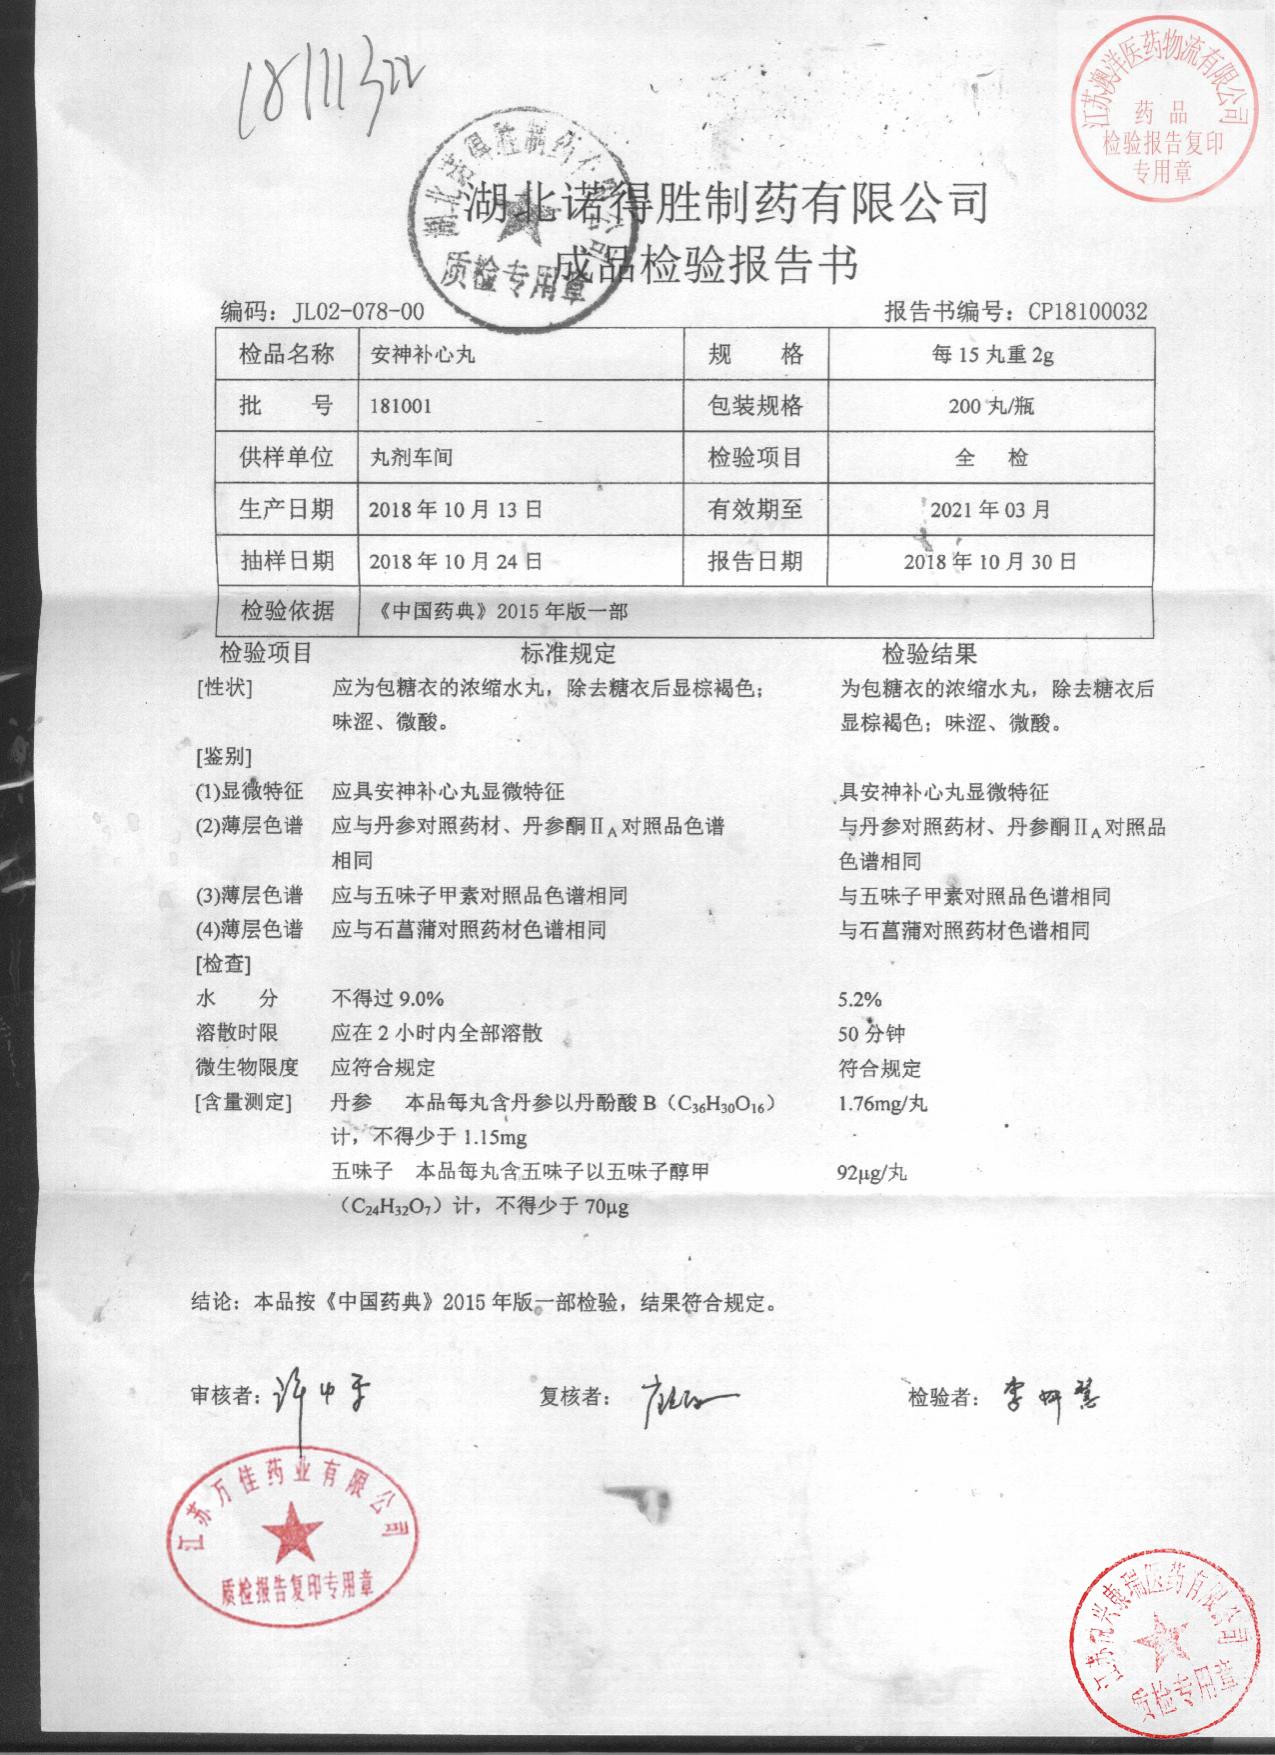 18111322
江苏澳洋医药物流有限公司
药品
检验报告复印
专用章
湖北诺得胜制药有限公司
质检专用章
湖北诺得胜制药有限公司
成品检验报告书
编码：JL02-078-00 报告书编号：CP18100032
检品名称 安神补心丸 规 格 每15丸重2g
批 号 181001 包装规格 200丸/瓶
供样单位 丸剂车间 检验项目 全 检
生产日期 2018年10月13日 有效期至 2021年03月
抽样日期 2018年10月24日 报告日期 2018年10月30日
检验依据 《中国药典》2015年版一部
检验项目 标准规定 检验结果
[性状] 应为包糖衣的浓缩水丸，除去糖衣后显棕褐色； 为包糖衣的浓缩水丸，除去糖衣后
味涩、微酸。 显棕褐色；味涩、微酸。
[鉴别]
(1)显微特征 应具安神补心丸显微特征 具安神补心丸显微特征
(2)薄层色谱 应与丹参对照药材、丹参酮ⅡA对照品色谱 与丹参对照药材、丹参酮ⅡA对照品
相同 色谱相同
(3)薄层色谱 应与五味子甲素对照品色谱相同 与五味子甲素对照品色谱相同
(4)薄层色谱 应与石菖蒲对照药材色谱相同 与石菖蒲对照药材色谱相同
[检查]
水 分 不得过9.0% 5.2%
溶散时限 应在2小时内全部溶散 50分钟
微生物限度 应符合规定 符合规定
[含量测定] 丹参 本品每丸含丹参以丹酚酸B（C36H30O16） 1.76mg/丸
计，不得少于1.15mg
五味子 本品每丸含五味子以五味子醇甲 92μg/丸
（C24H32O7）计，不得少于70μg
结论：本品按《中国药典》2015年版一部检验，结果符合规定。
审核者： 复核者： 检验者：
江苏万佳药业有限公司
质检报告复印专用章
质检专用章